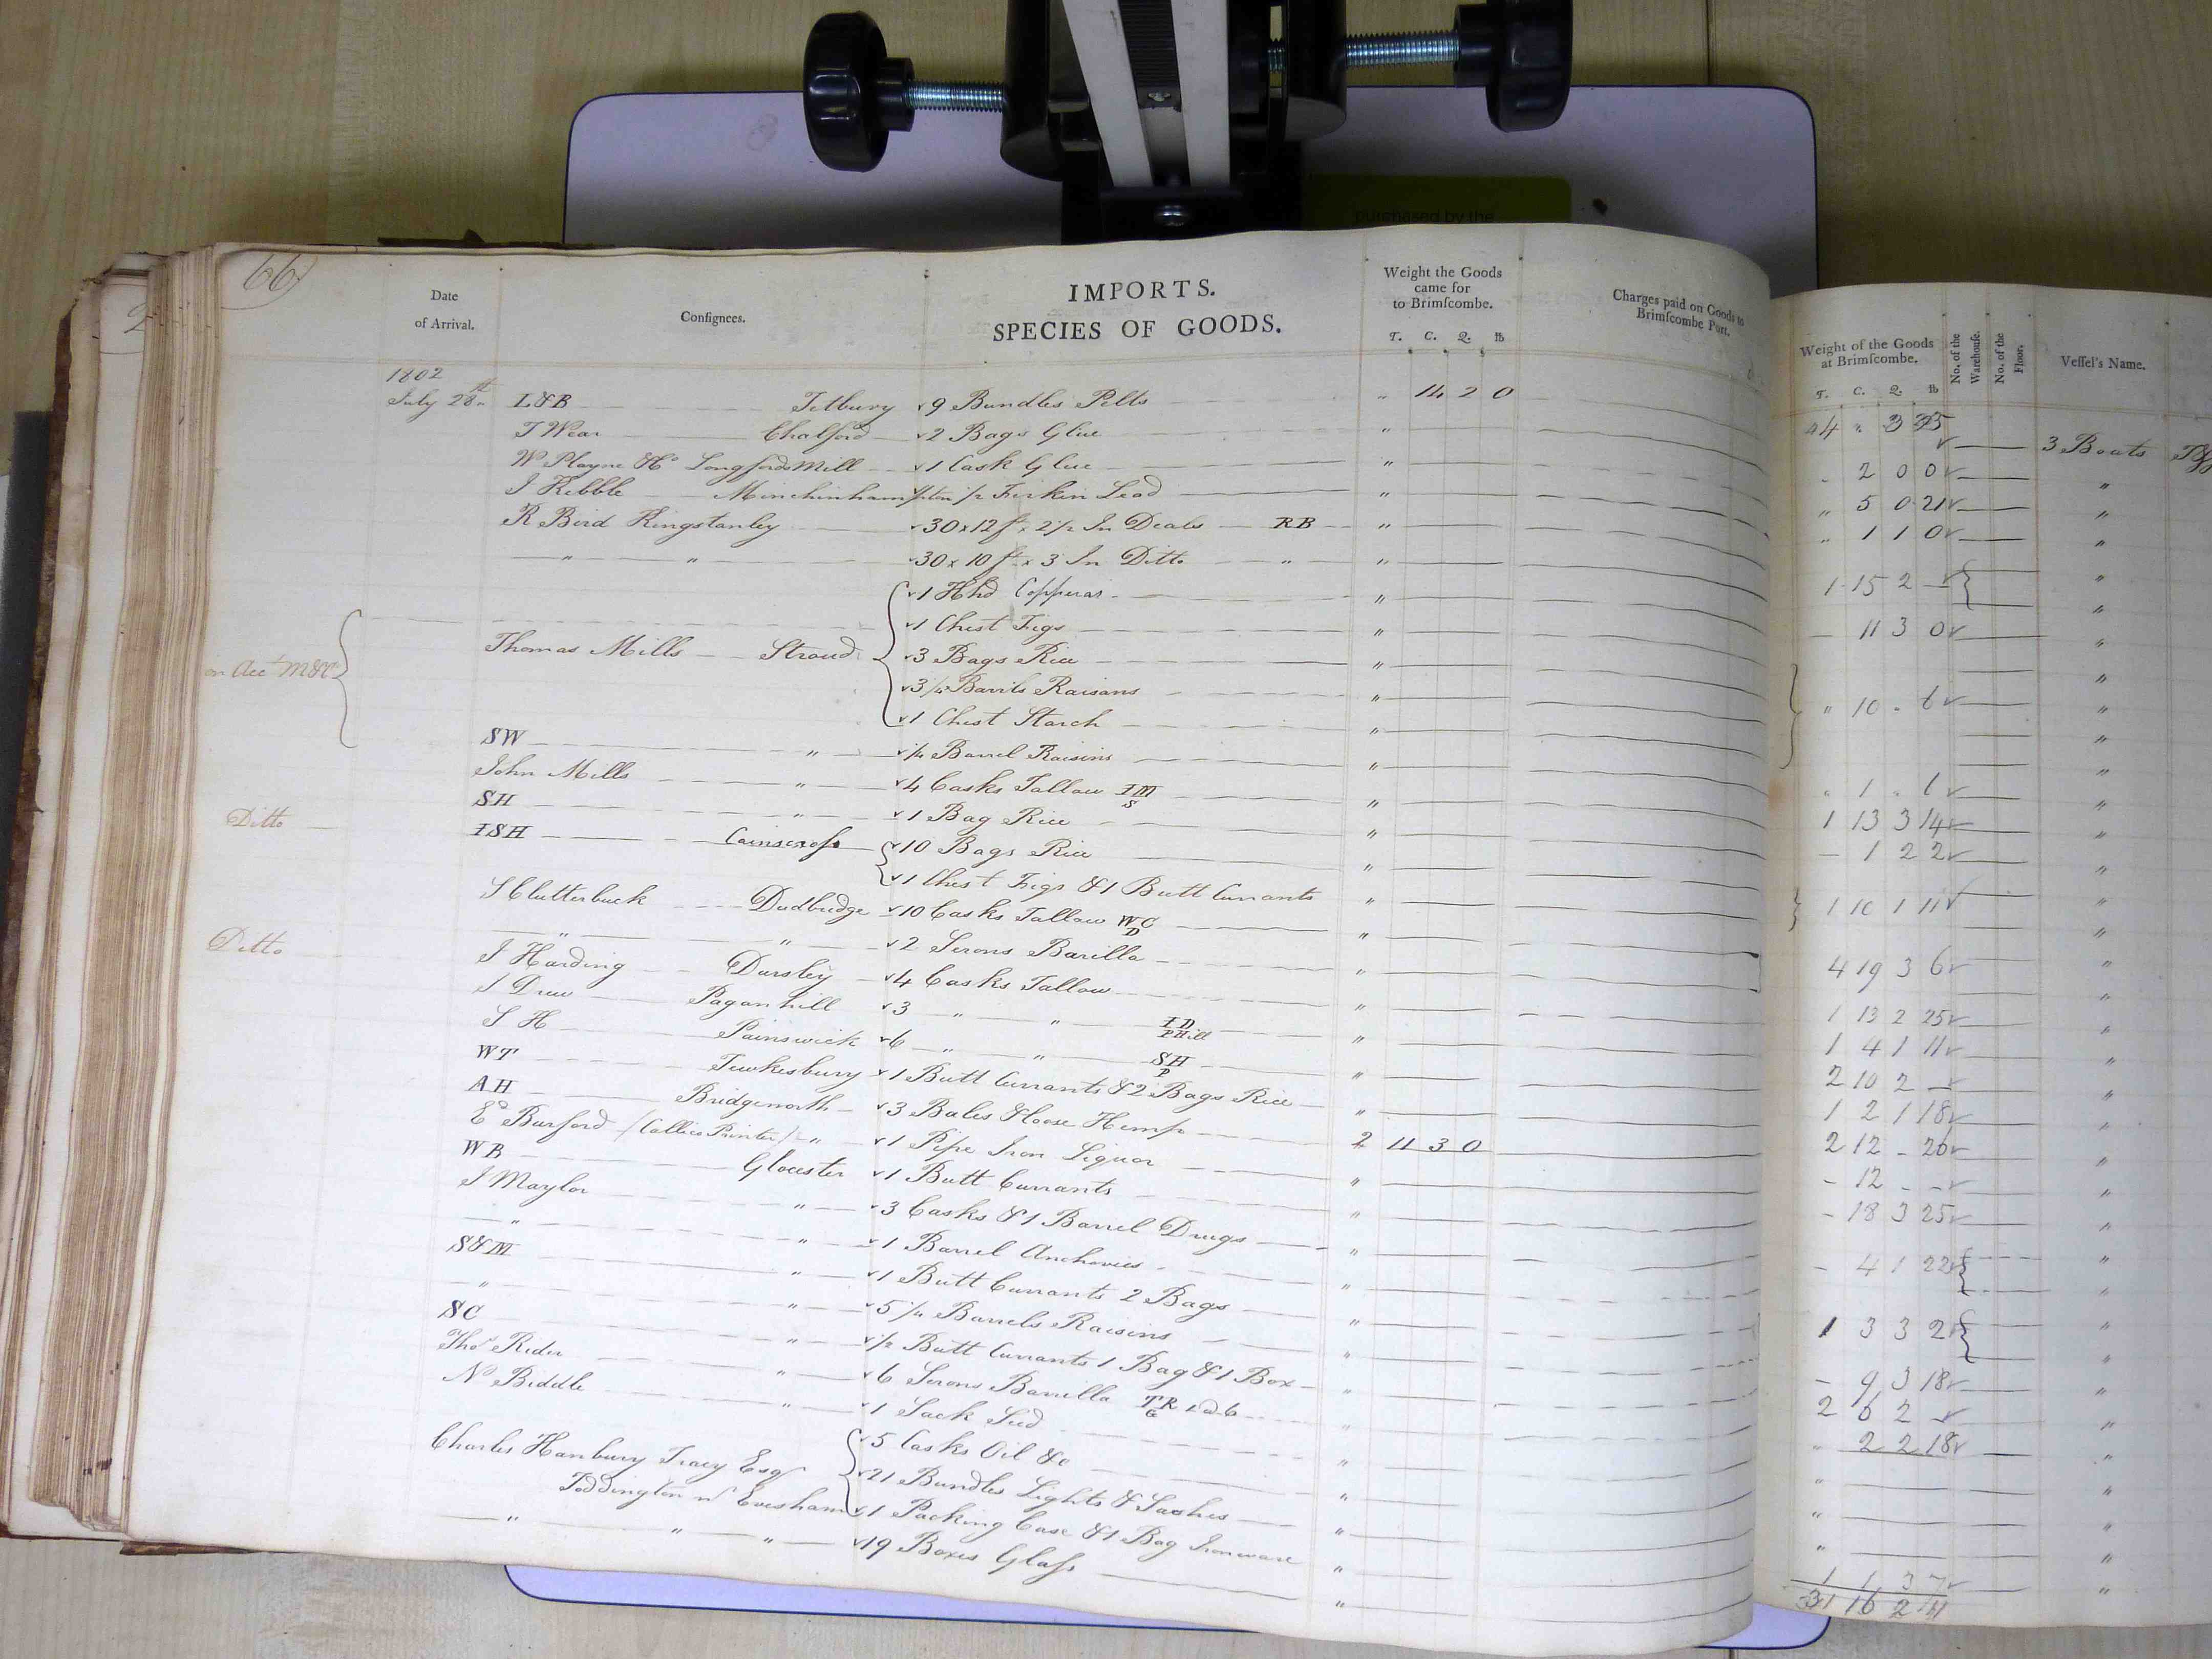 purchased by the
66
2
Date of Arrival.
Consignees.
IMPORTS.
SPECIES OF GOODS.
Weight the Goods came for to Brimscombe.
T. C. Q. lb
Charges paid on Goods to Brimscombe Port.
Weight of the Goods at Brimscombe.
T. C. Q. lb
No. of the Warehouse.
No. of the Floor.
Vessel's Name.
1802
July 28th L&B Tetbury 9 Bundles Pelts " 14 2 0
T Wear Chalford 2 Bags Glue " 3 Boats
Wm Playne & Co Longfords Mill 1 Cask Glue " - 2 0 0 "
I Kibble Minchinhampton 1/2 Firkin Lead " " 5 0 21 "
R Bird Kingstanley 30 x 12 ft x 2 1/2 In Deals RB " " 1 1 0 "
" " 30 x 10 ft x 3 In Ditto " " 1 15 2 - "
1 Hhd Copperas " - 11 3 0 "
1 Chest Figs "
on Acct M&Co Thomas Mills Stroud 3 Bags Rice " " 10 - 6 "
3 1/4 Barrils Raisans "
1 Chest Starch "
SW " 1/4 Barrel Raisins " " 1 " 6 "
John Mills " 4 Casks Tallow IM S " 1 13 3 14 "
Ditto SH " 1 Bag Rice " - 1 2 2 "
ISH Cainscross 10 Bags Rice " 1 10 1 11 "
1 Chest Figs & 1 Butt Currants "
S Clutterbuck Dudbridge 10 Casks Tallow WC D " 4 19 3 6 "
Ditto " " 2 Serons Barilla "
I Harding Dursley 4 Casks Tallow " 1 13 2 25 "
I Drew Paganhill 3 " " ID PHill " 1 4 1 11 "
S H Painswick 6 " " SH P " 2 10 2 - "
WT Tewkesbury 1 Butt Currants & 2 Bags Rice " 1 2 1 18 "
AH Bridgenorth 3 Bales & loose Hemp 2 11 3 0 2 12 - 20 "
Ed Burford (Callico Printer) " 1 Pipe Iron Liquor " - 12 - - "
WB Glocester 1 Butt Currants " - 18 3 25 "
I Maylor " 3 Casks & 1 Barrel Drugs " - 4 1 22 "
" " 1 Barrel Anchovies "
S&M " 1 Butt Currants 2 Bags " 1 3 3 2 "
" " 5 1/4 Barrels Raisins "
SC " 1/2 Butt Currants 1 Bag & 1 Box " - 9 3 18 "
Thos Rider " 6 Serons Barrilla TR G 1 @ 6 " 2 6 2 - "
N Biddle " 1 Sack Seed " " 2 2 18 "
Charles Hanbury Tracy Esqr 5 Casks Oil &c "
21 Bundles Lights & Sashes "
Toddington nr Evesham 1 Packing Case & 1 Bag Ironware "
" " " 19 Boxes Glass " 1 1 3 7 "
31 16 2